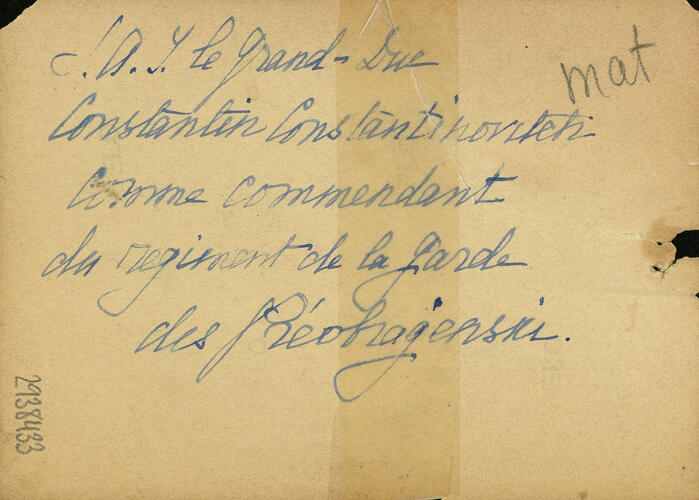 S. A. I. le Grand-Duc
mat
Constantin Constantinovitch
Comme commendant
du regiment de la Garde
des Préobragenski.
2938433